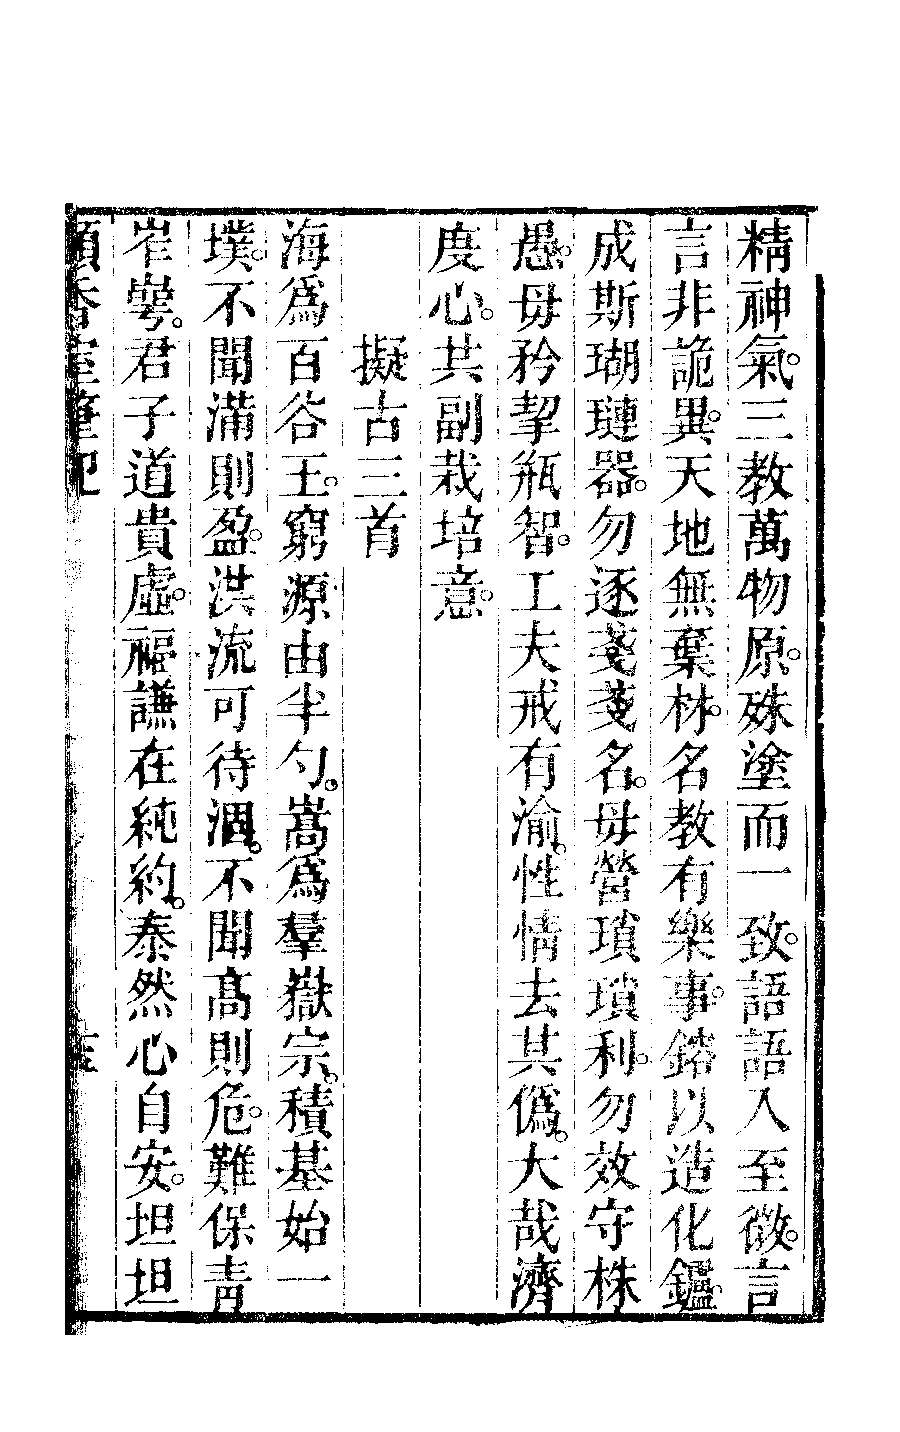 精神氣。三教萬物原。殊塗而一致。語語入至微。言
言非詭異。天地無棄材。名教有樂事。鎔以造化鑪。
成斯瑚璉器。勿逐戔戔名。毋營瑣瑣利。勿效守株
愚。毋矜挈瓶智。工夫戒有渝。性情去其僞。大哉濟
度心。共副栽培意。
擬古三首
海爲百谷王。窮源由半勺。嵩爲羣嶽宗。積基始一
墣。不聞滿則盈。洪流可待涸。不聞高則危。難保靑
岝崿。君子道貴虛。福謙在純約。泰然心自安。坦坦
室筆記